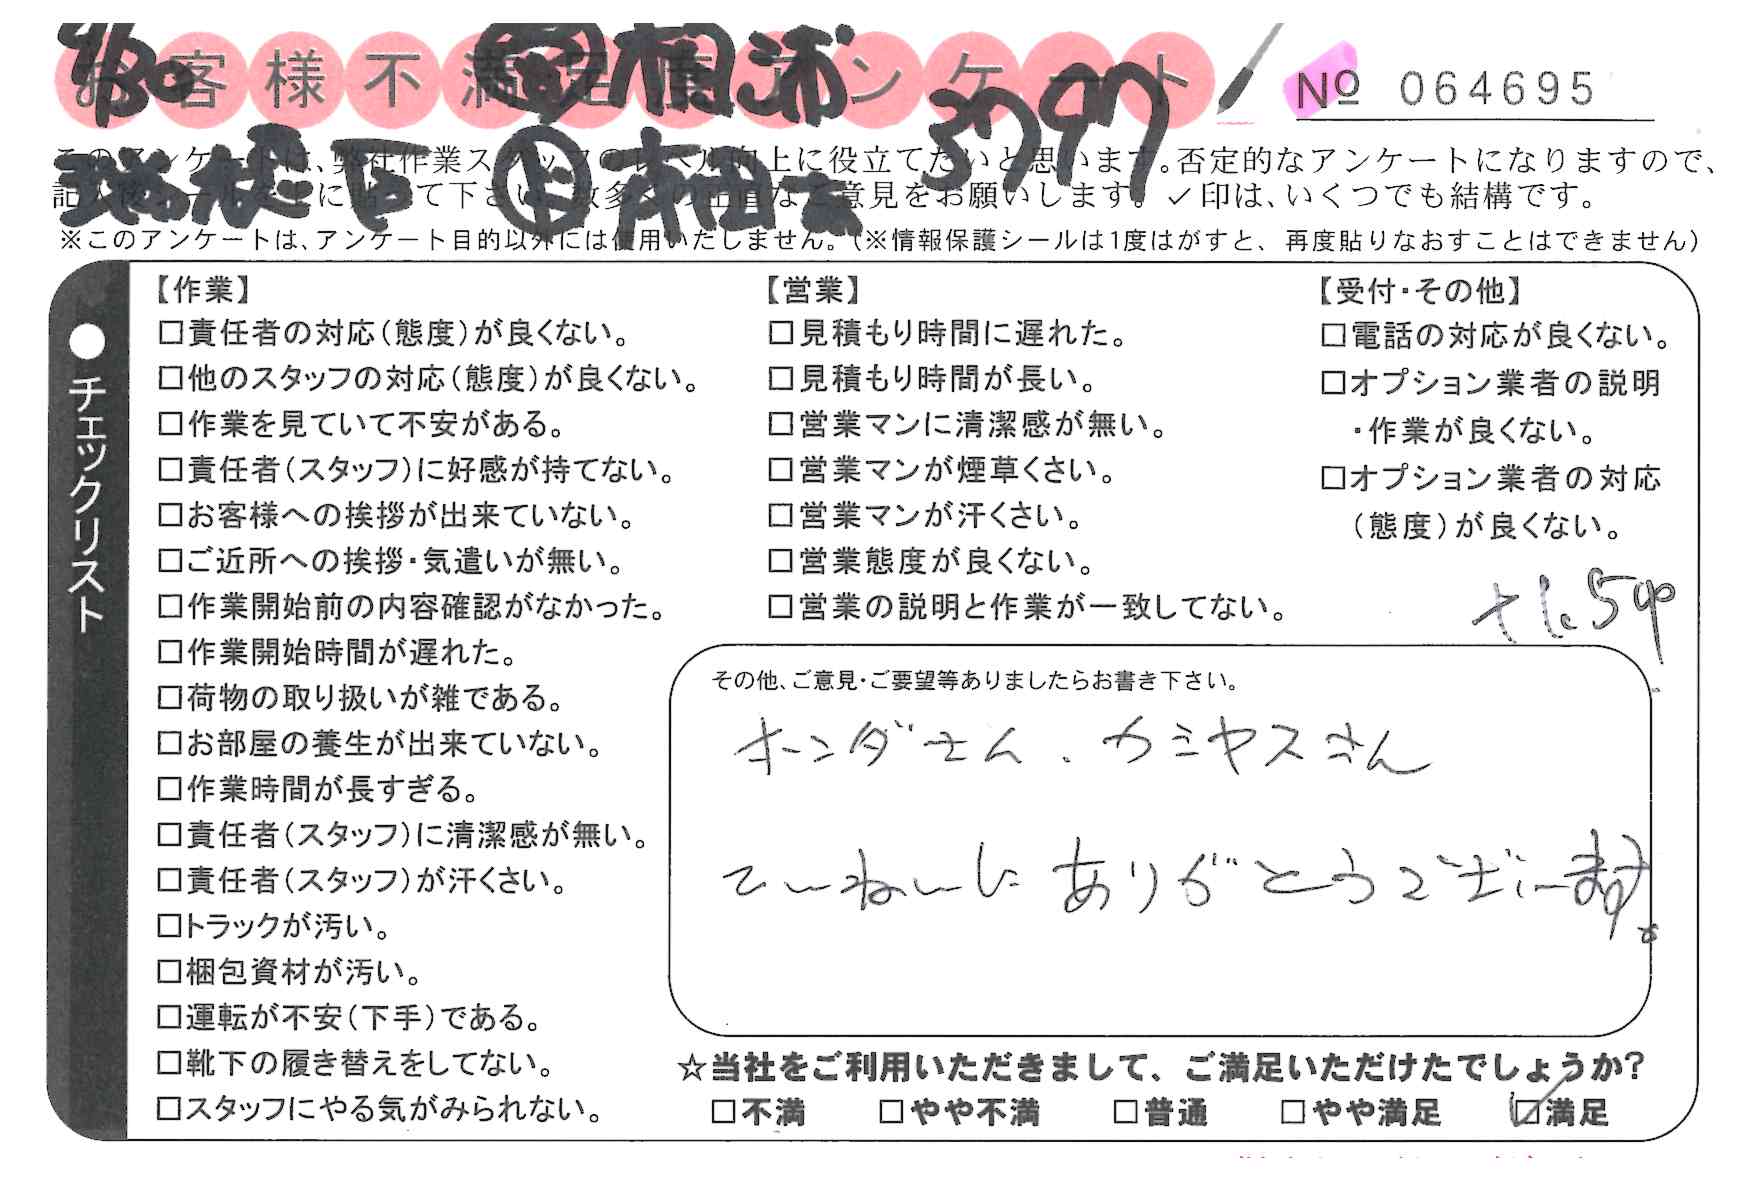 お客様不満足度アンケート
№ 064695
4/30
3797
このアンケートは、弊社作業スタッフのレベル向上に役立てたいと思います。否定的なアンケートになりますので、
て下さい。数多くの正直なご意見をお願いします。✓印は、いくつでも結構です。
※このアンケートは、アンケート目的以外には使用いたしません。（※情報保護シールは1度はがすと、再度貼りなおすことはできません）
●チェックリスト
【作業】
□責任者の対応（態度）が良くない。
□他のスタッフの対応（態度）が良くない。
□作業を見ていて不安がある。
□責任者（スタッフ）に好感が持てない。
□お客様への挨拶が出来ていない。
□ご近所への挨拶・気遣いが無い。
□作業開始前の内容確認がなかった。
□作業開始時間が遅れた。
□荷物の取り扱いが雑である。
□お部屋の養生が出来ていない。
□作業時間が長すぎる。
□責任者（スタッフ）に清潔感が無い。
□責任者（スタッフ）が汗くさい。
□トラックが汚い。
□梱包資材が汚い。
□運転が不安（下手）である。
□靴下の履き替えをしてない。
□スタッフにやる気がみられない。
【営業】
□見積もり時間に遅れた。
□見積もり時間が長い。
□営業マンに清潔感が無い。
□営業マンが煙草くさい。
□営業マンが汗くさい。
□営業態度が良くない。
□営業の説明と作業が一致してない。
【受付・その他】
□電話の対応が良くない。
□オプション業者の説明
・作業が良くない。
□オプション業者の対応
（態度）が良くない。
その他、ご意見・ご要望等ありましたらお書き下さい。
ホンダさん、カミヤスさん
てーねーに ありがとうございます。
☆当社をご利用いただきまして、ご満足いただけたでしょうか？
□不満 □やや不満 □普通 □やや満足 ☑満足